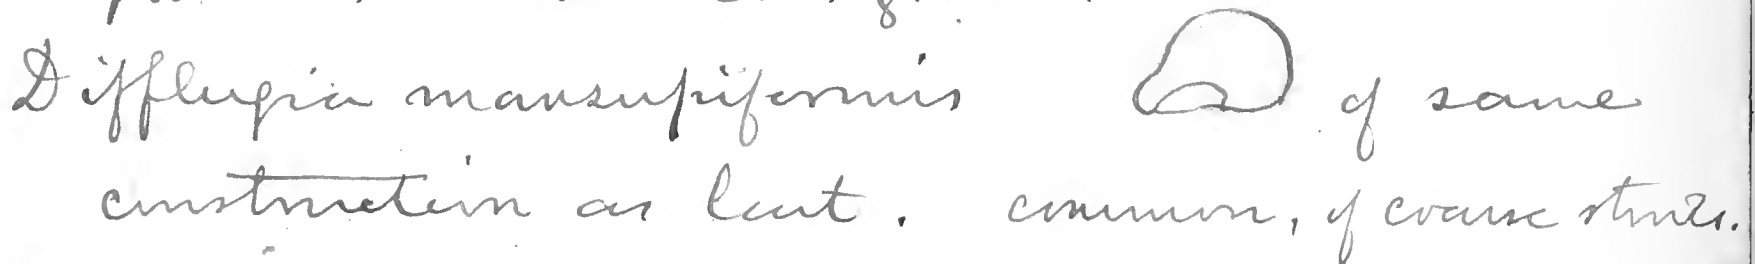 Difflugia marsupiformis of same
construction as last. common, of coarse stones.